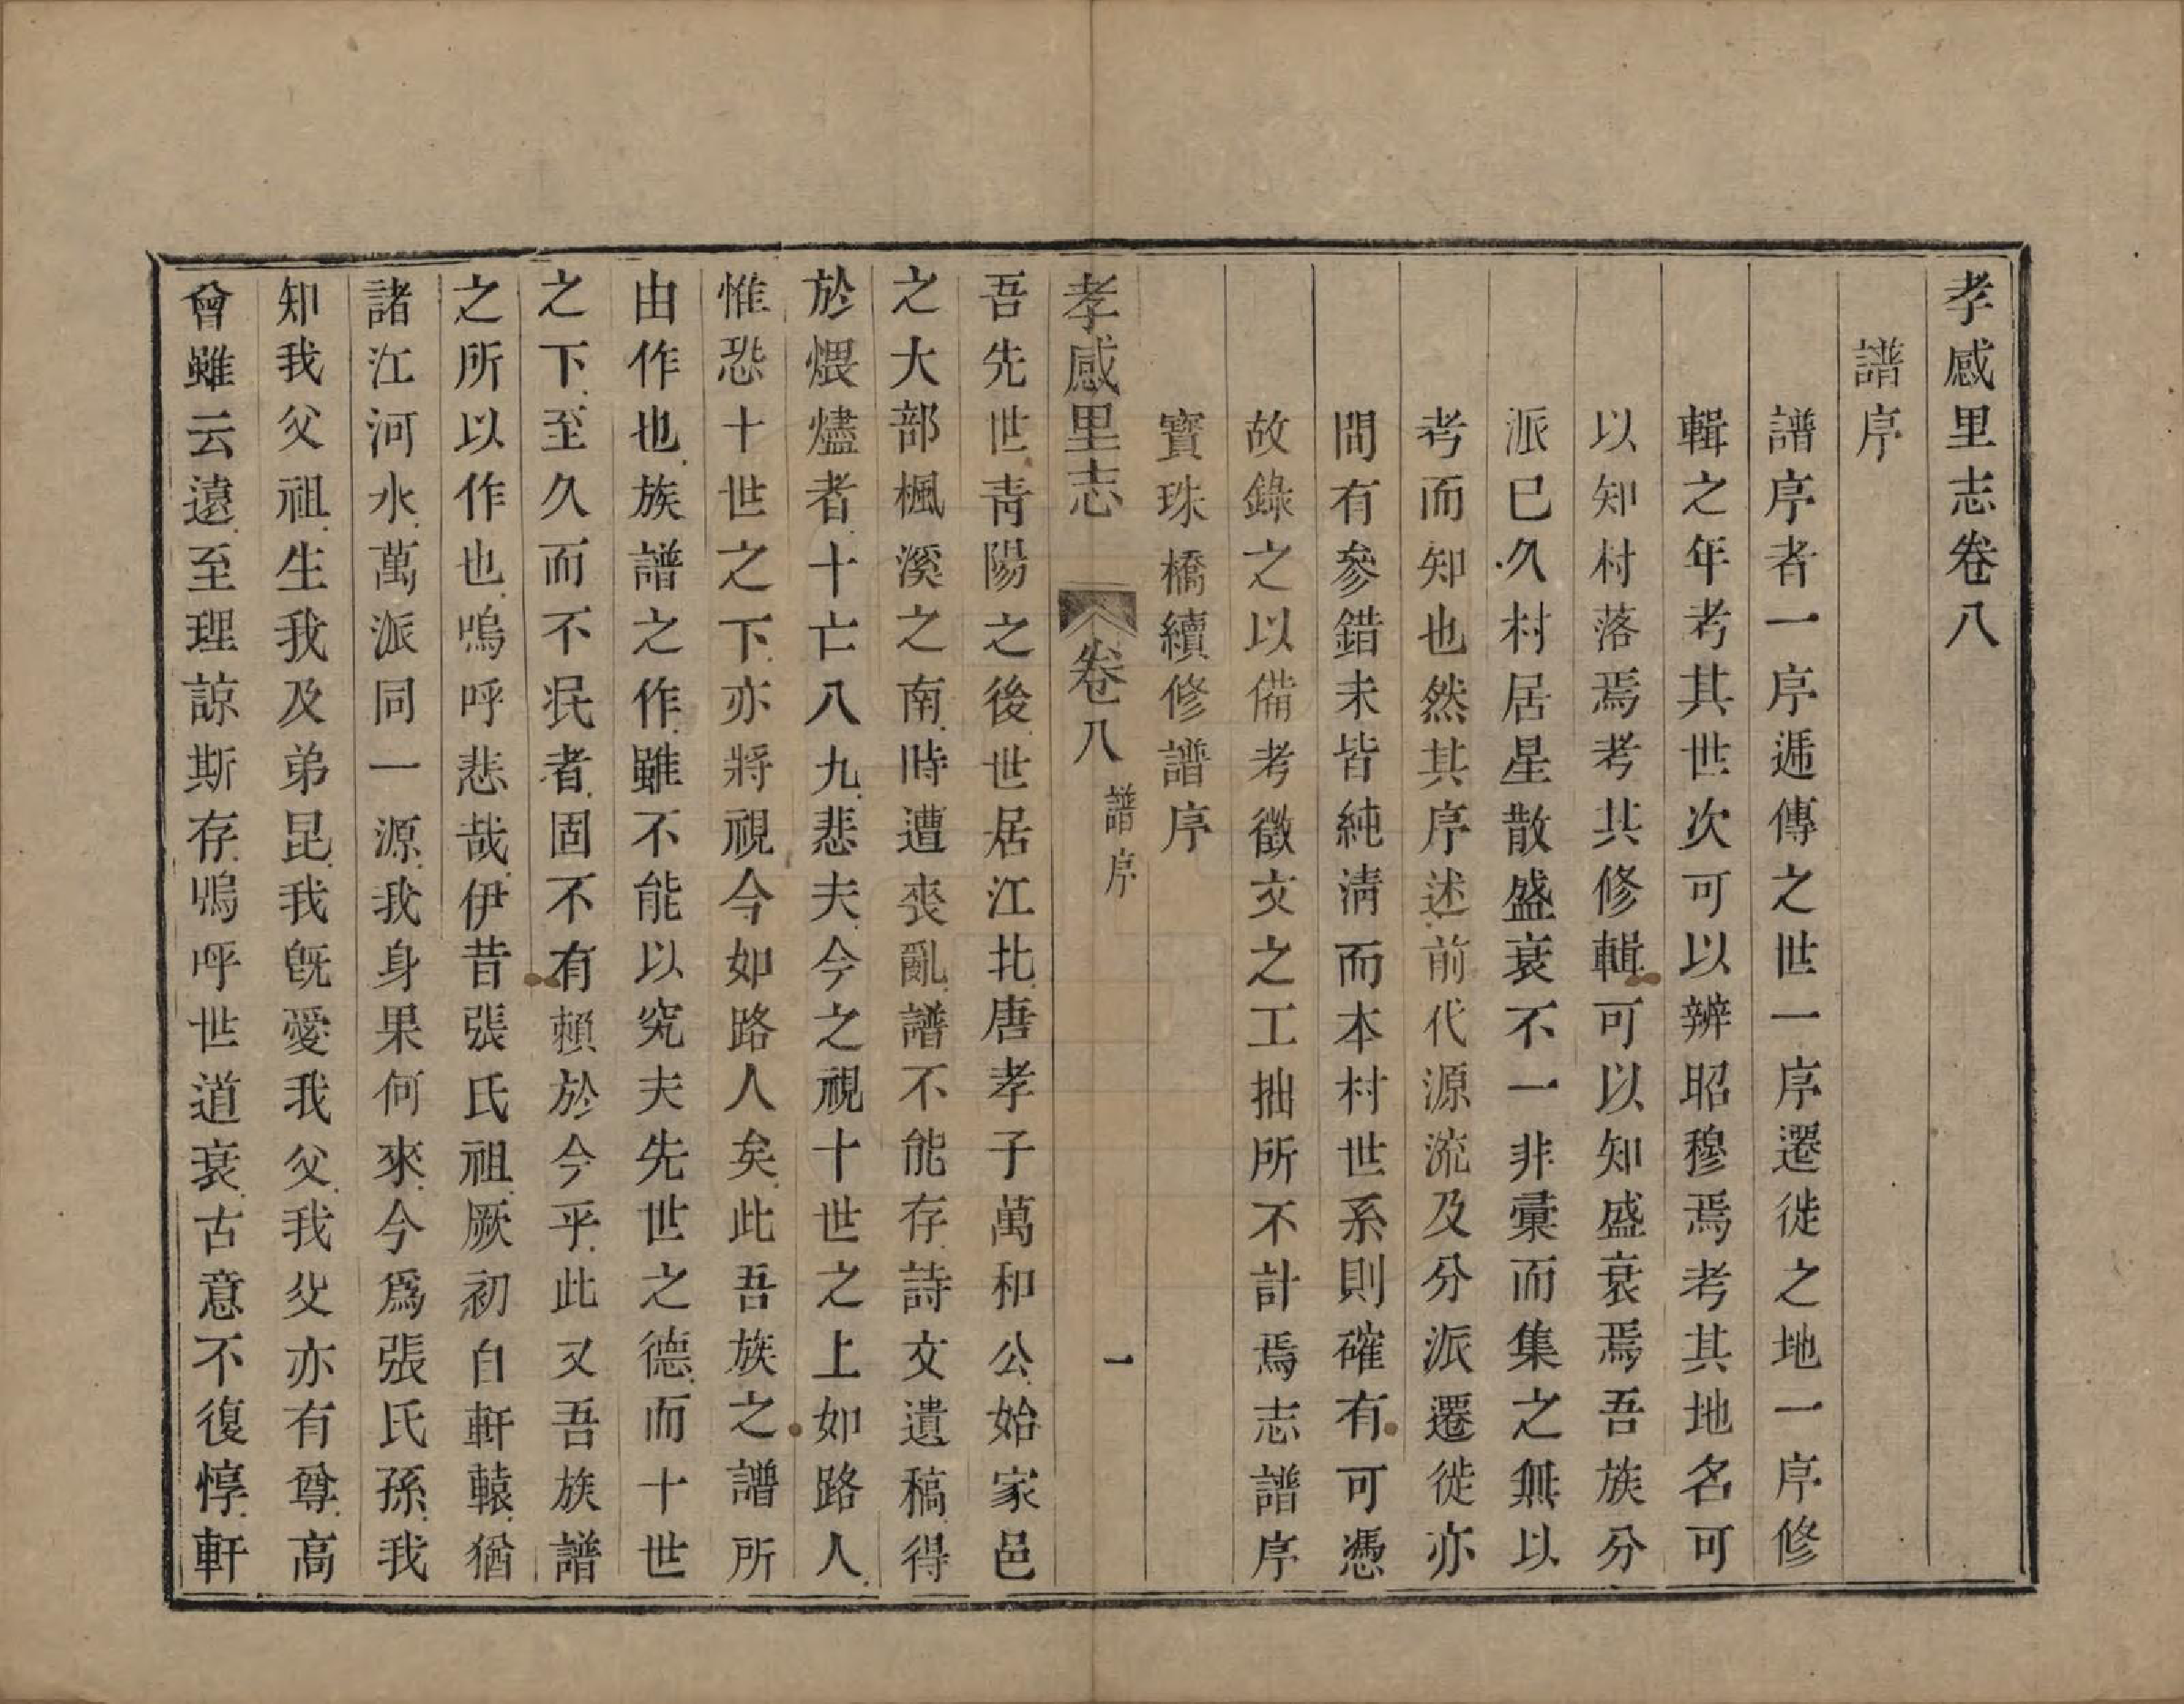 孝感里志卷八
譜序
譜序者一序遞傳之世一序遷徙之地一序修
輯之年考其世次可以辨昭穆焉考其地名可
以知村落焉考其修輯可以知盛衰焉吾族分
派已久村居星散盛衰不一非彙而集之無以
考而知也然其序述前代源流及分派遷徙亦
間有參錯未皆純淸而本村世系則確有可憑
故錄之以備考徵文之工拙所不計焉志譜序
寶珠橋續修譜序
孝感里志 卷八 譜序 一
吾先世靑陽之後世居江北唐孝子萬和公始家邑
之大部楓溪之南時遭喪亂譜不能存詩文遺稿得
於煨燼者十亡八九悲夫今之視十世之上如路人
惟恐十世之下亦將視今如路人矣此吾族之譜所
由作也族譜之作雖不能以究夫先世之德而十世
之下至久而不泯者固不有賴於今乎此又吾族譜
之所以作也嗚呼悲哉伊昔張氏祖厥初自軒轅猶
諸江河水萬派同一源我身果何來今爲張氏孫我
知我父祖生我及弟昆我旣愛我父我父亦有尊高
曾雖云遠至理諒斯存嗚呼世道衰古意不復惇軒